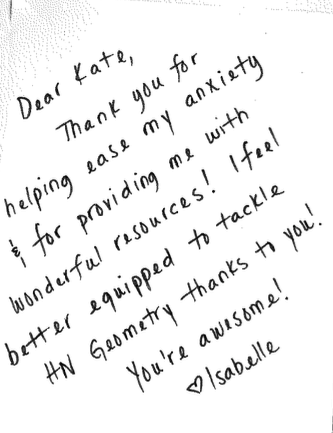 Dear Kate,
Thank you for
helping ease my anxiety
& for providing me with
wonderful resources! I feel
better equipped to tackle
HN Geometry thanks to you!
You're awesome!
♡Isabelle